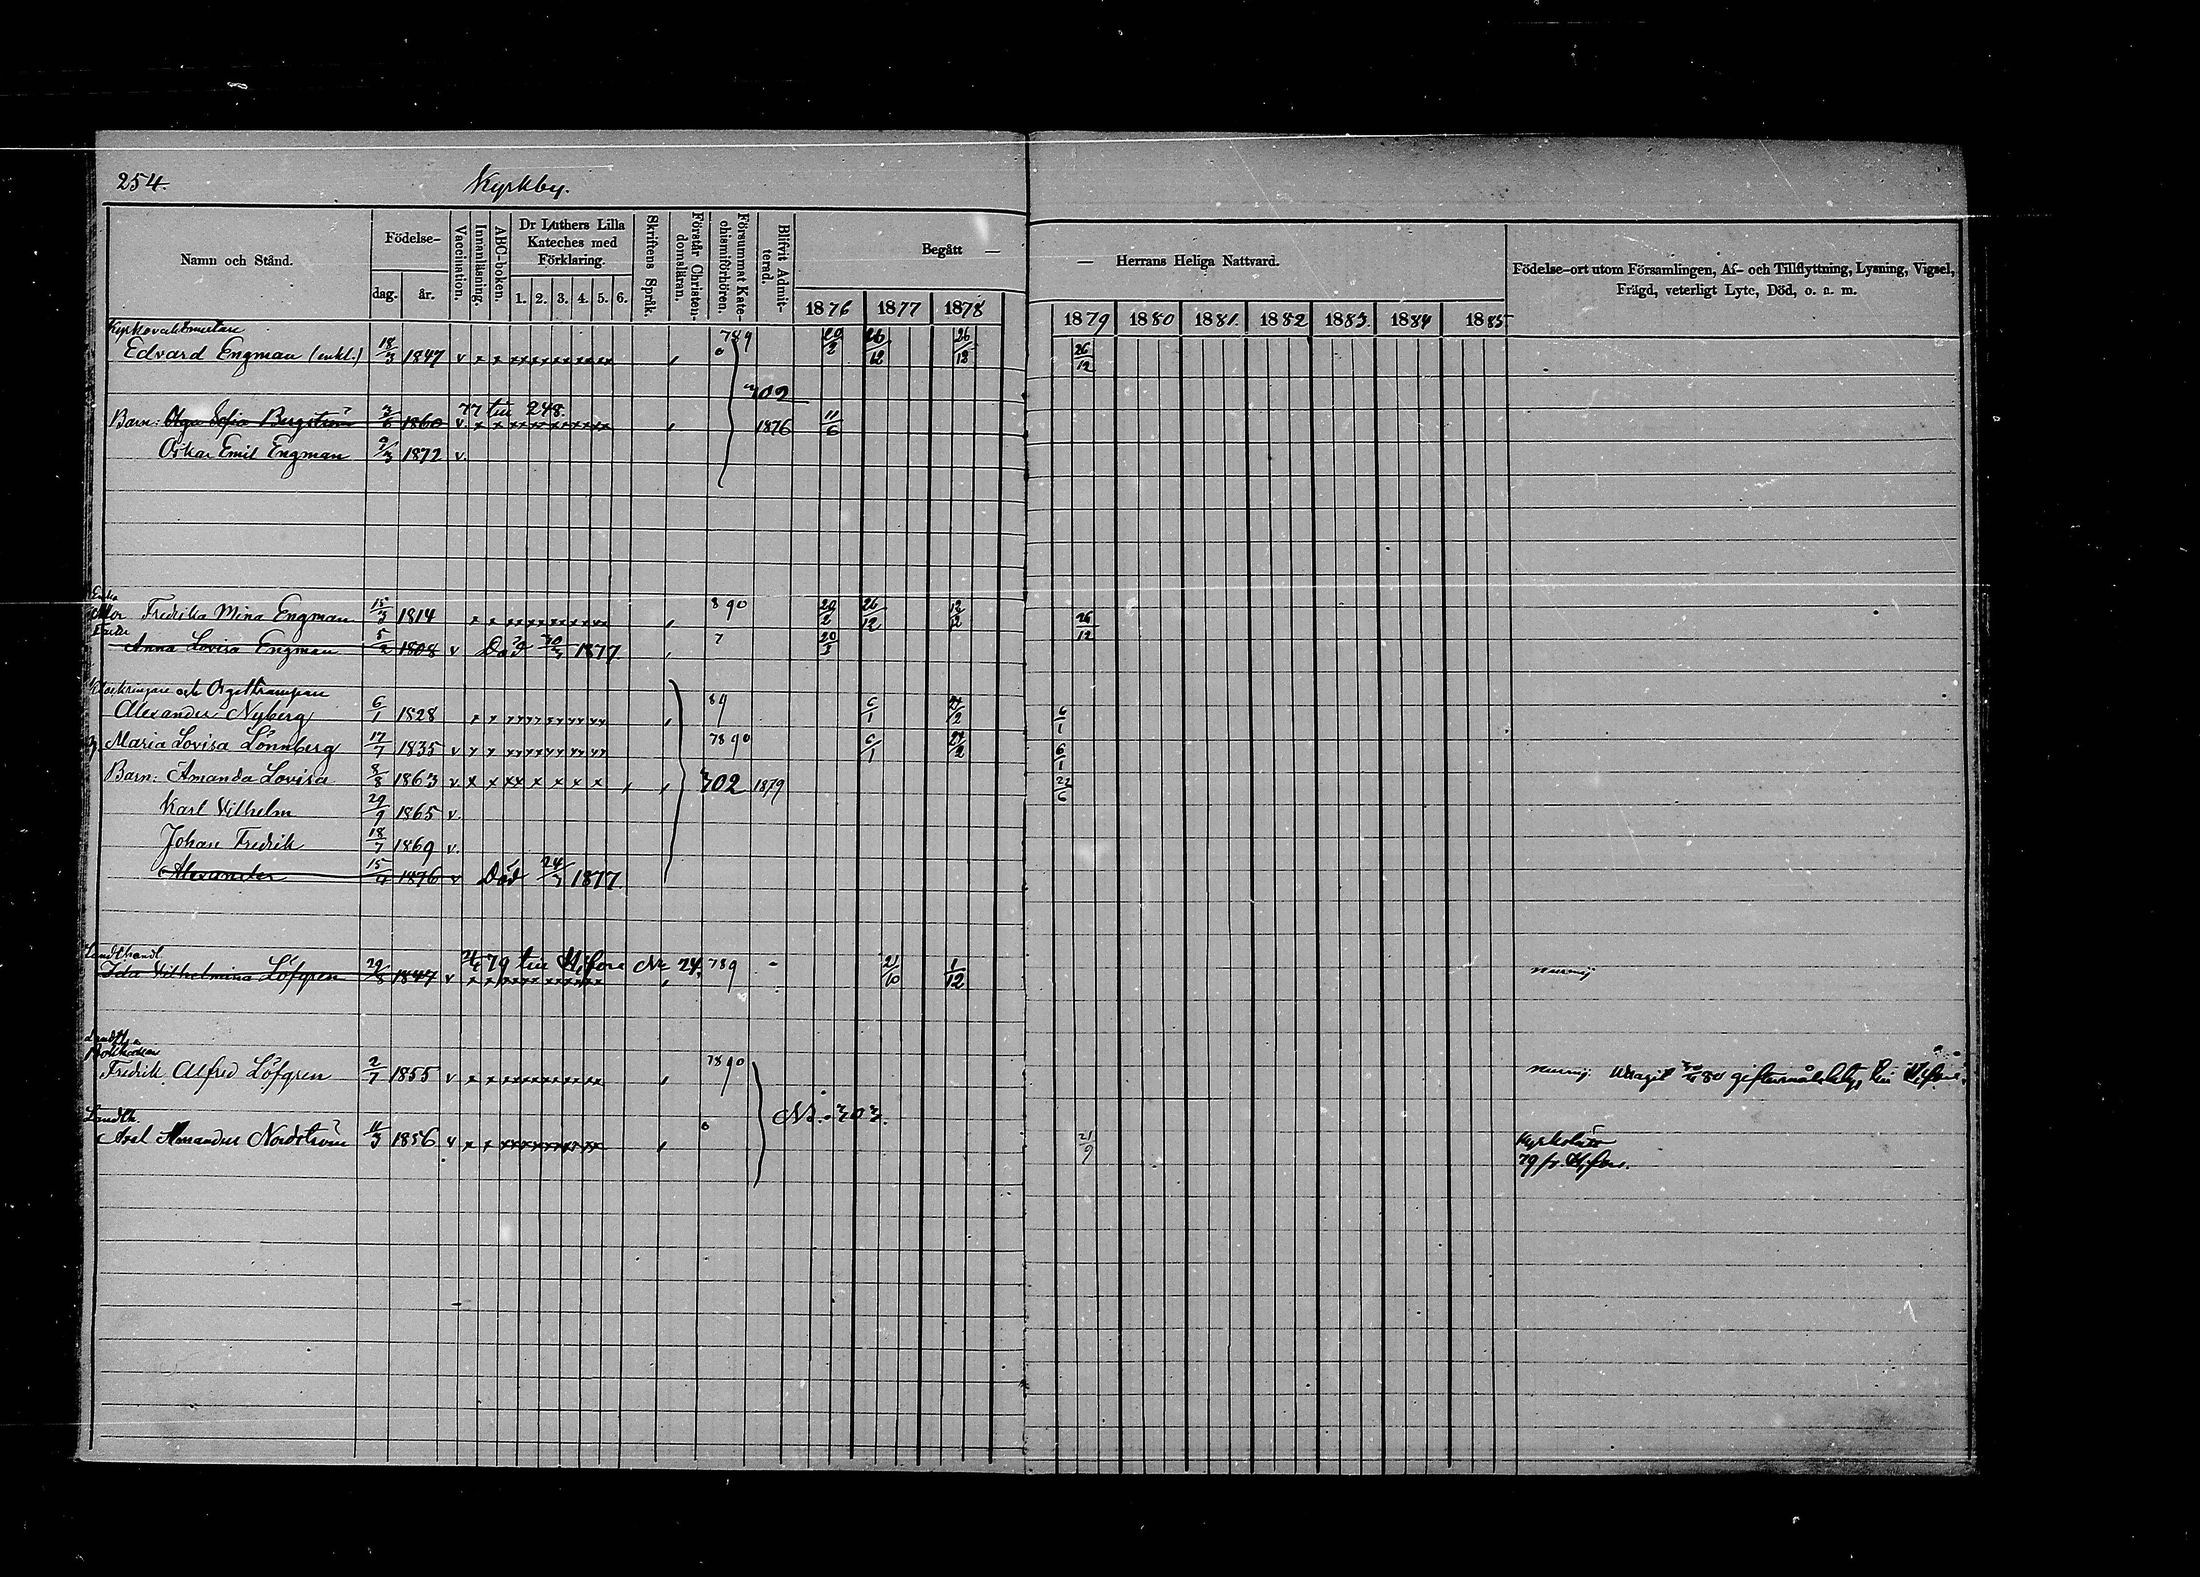 254. Kyrkby.
Namn och Stånd. Födelse- dag. år. Vaccination. Innanläsning. ABC-boken. Dr Luthers Lilla Kateches med Förklaring. 1. 2. 3. 4. 5. 6. Skriftens Språk. Förstår Christendomsläran. Försummat Katechismiförhören. Blifvit Admitterad. Begått — 1876 1877 1878
— Herrans Heliga Nattvard. 1879 1880 1881. 1882 1883. 1884 1885.
Födelse-ort utom Församlingen, Af- och Tillflyttning, Lysning, Vigsel,
Frägd, veterligt Lyte, Död, o. a. m.
Edvard Engman (enkl.) 18/3 1847 v 789 0 20/2 26/12 26/12 26/12
302
77 till 248.
Barn: Olga Sofia Bergström 3/6 1860 v. 1876 11/6
Oskar Emil Engman 9/3 1872 v.
Enka
Mor Fredrika Mina Engman 15/3 1814 890 20/2 26/12 12/12 26/12
Anna Lovisa Engman 5/2 1808 v Död 1877 7
Klockringare och Orgeltrampare
Alexander Nyberg 6/1 1828 89 6/1 24/2 6/1
h. Maria Lovisa Lönnberg 17/7 1835 v 7890 6/1 24/2 6/1
Barn: Amanda Lovisa 8/8 1863 v 302 1879 22/6
Karl Vilhelm 29/9 1865 v.
Johan Fredrik 18/7 1869 v.
Alexander 15/4 1876 v Död 24/3 1877
Landthandl.
Ida Vilhelmina Löfgren 1847 v 79 till H:fors No 24. 789 21/10 1/12
Fredrik Alfred Löfgren 2/7 1855 v 7890 80 till H:fors.
No. 303.
Landth.
Axel Amandus Nordström 11/3 1856 v 0 21/9 Kyrkslätt
79 fr H:fors.